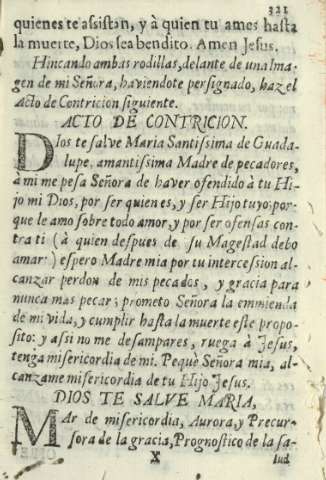 321
quienes te assistan, y à quien tu ames hasta
la muerte, Dios sea bendito. Amen Jesus.
Hincando ambas rodillas, delante de una Ima-
gen de mi Señora, haviendote persignado, haz el
Acto de Contricion siguiente.
ACTO DE CONTRICION.
DIos te salve Maria Santissima de Guada-
lupe, amantissima Madre de pecadores,
a mi me pesa Señora de haver ofendido à tu Hi-
jo mi Dios, por ser quien es, y ser Hijo tuyo: por-
que le amo sobre todo amor, y por ser ofensas con-
tra ti (à quien despues de su Magestad debo
amar:) espero Madre mia por tu intercession al-
canzar perdon de mis pecados, y gracia para
nunca mas pecar; prometo Señora la emmienda
de mi vida, y cumplir hasta la muerte este propo-
sito: y assi no me desampares, ruega à Jesus,
tenga misericordia de mi. Pequè Señora mia, al-
canzame misericordia de tu Hijo Jesus.
DIOS TE SALVE MARIA,
MAr de misericordia, Aurora, y Precur-
sora de la gracia, Prognostico de la sa-
X lud